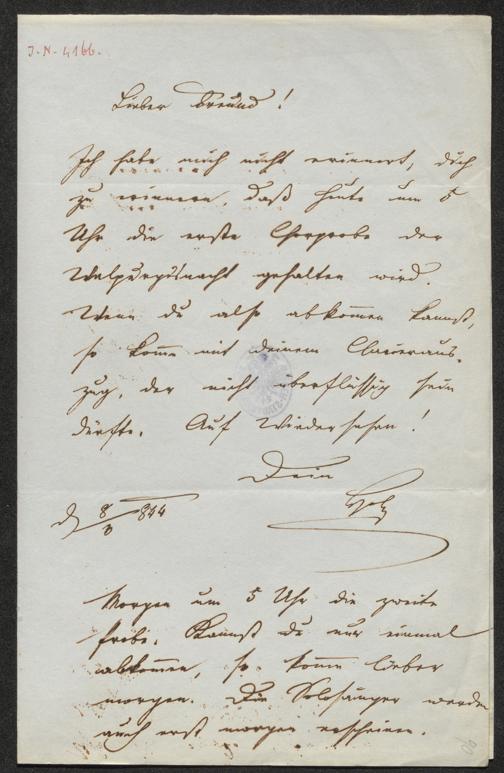 J.N. 4166.
Lieber Freund!
Ich habe mich nicht erinnert, dich
zu erinnern, daß heute um 5
Uhr die erste Chorprobe der
Walpurgisnacht gehalten wird.
Wenn du also abkommen kannst,
so komm mit deinem Clavieraus-
zug, der nicht überflüssig sein
dürfte. Auf Wiedersehen!
Dein
Holz
d 8/3 844
Morgen um 5 Uhr die zweite
Probe. Kannst du nur einmal
abkommen, so komm lieber
morgen. Die Solosänger werden
auch erst morgen erscheinen.